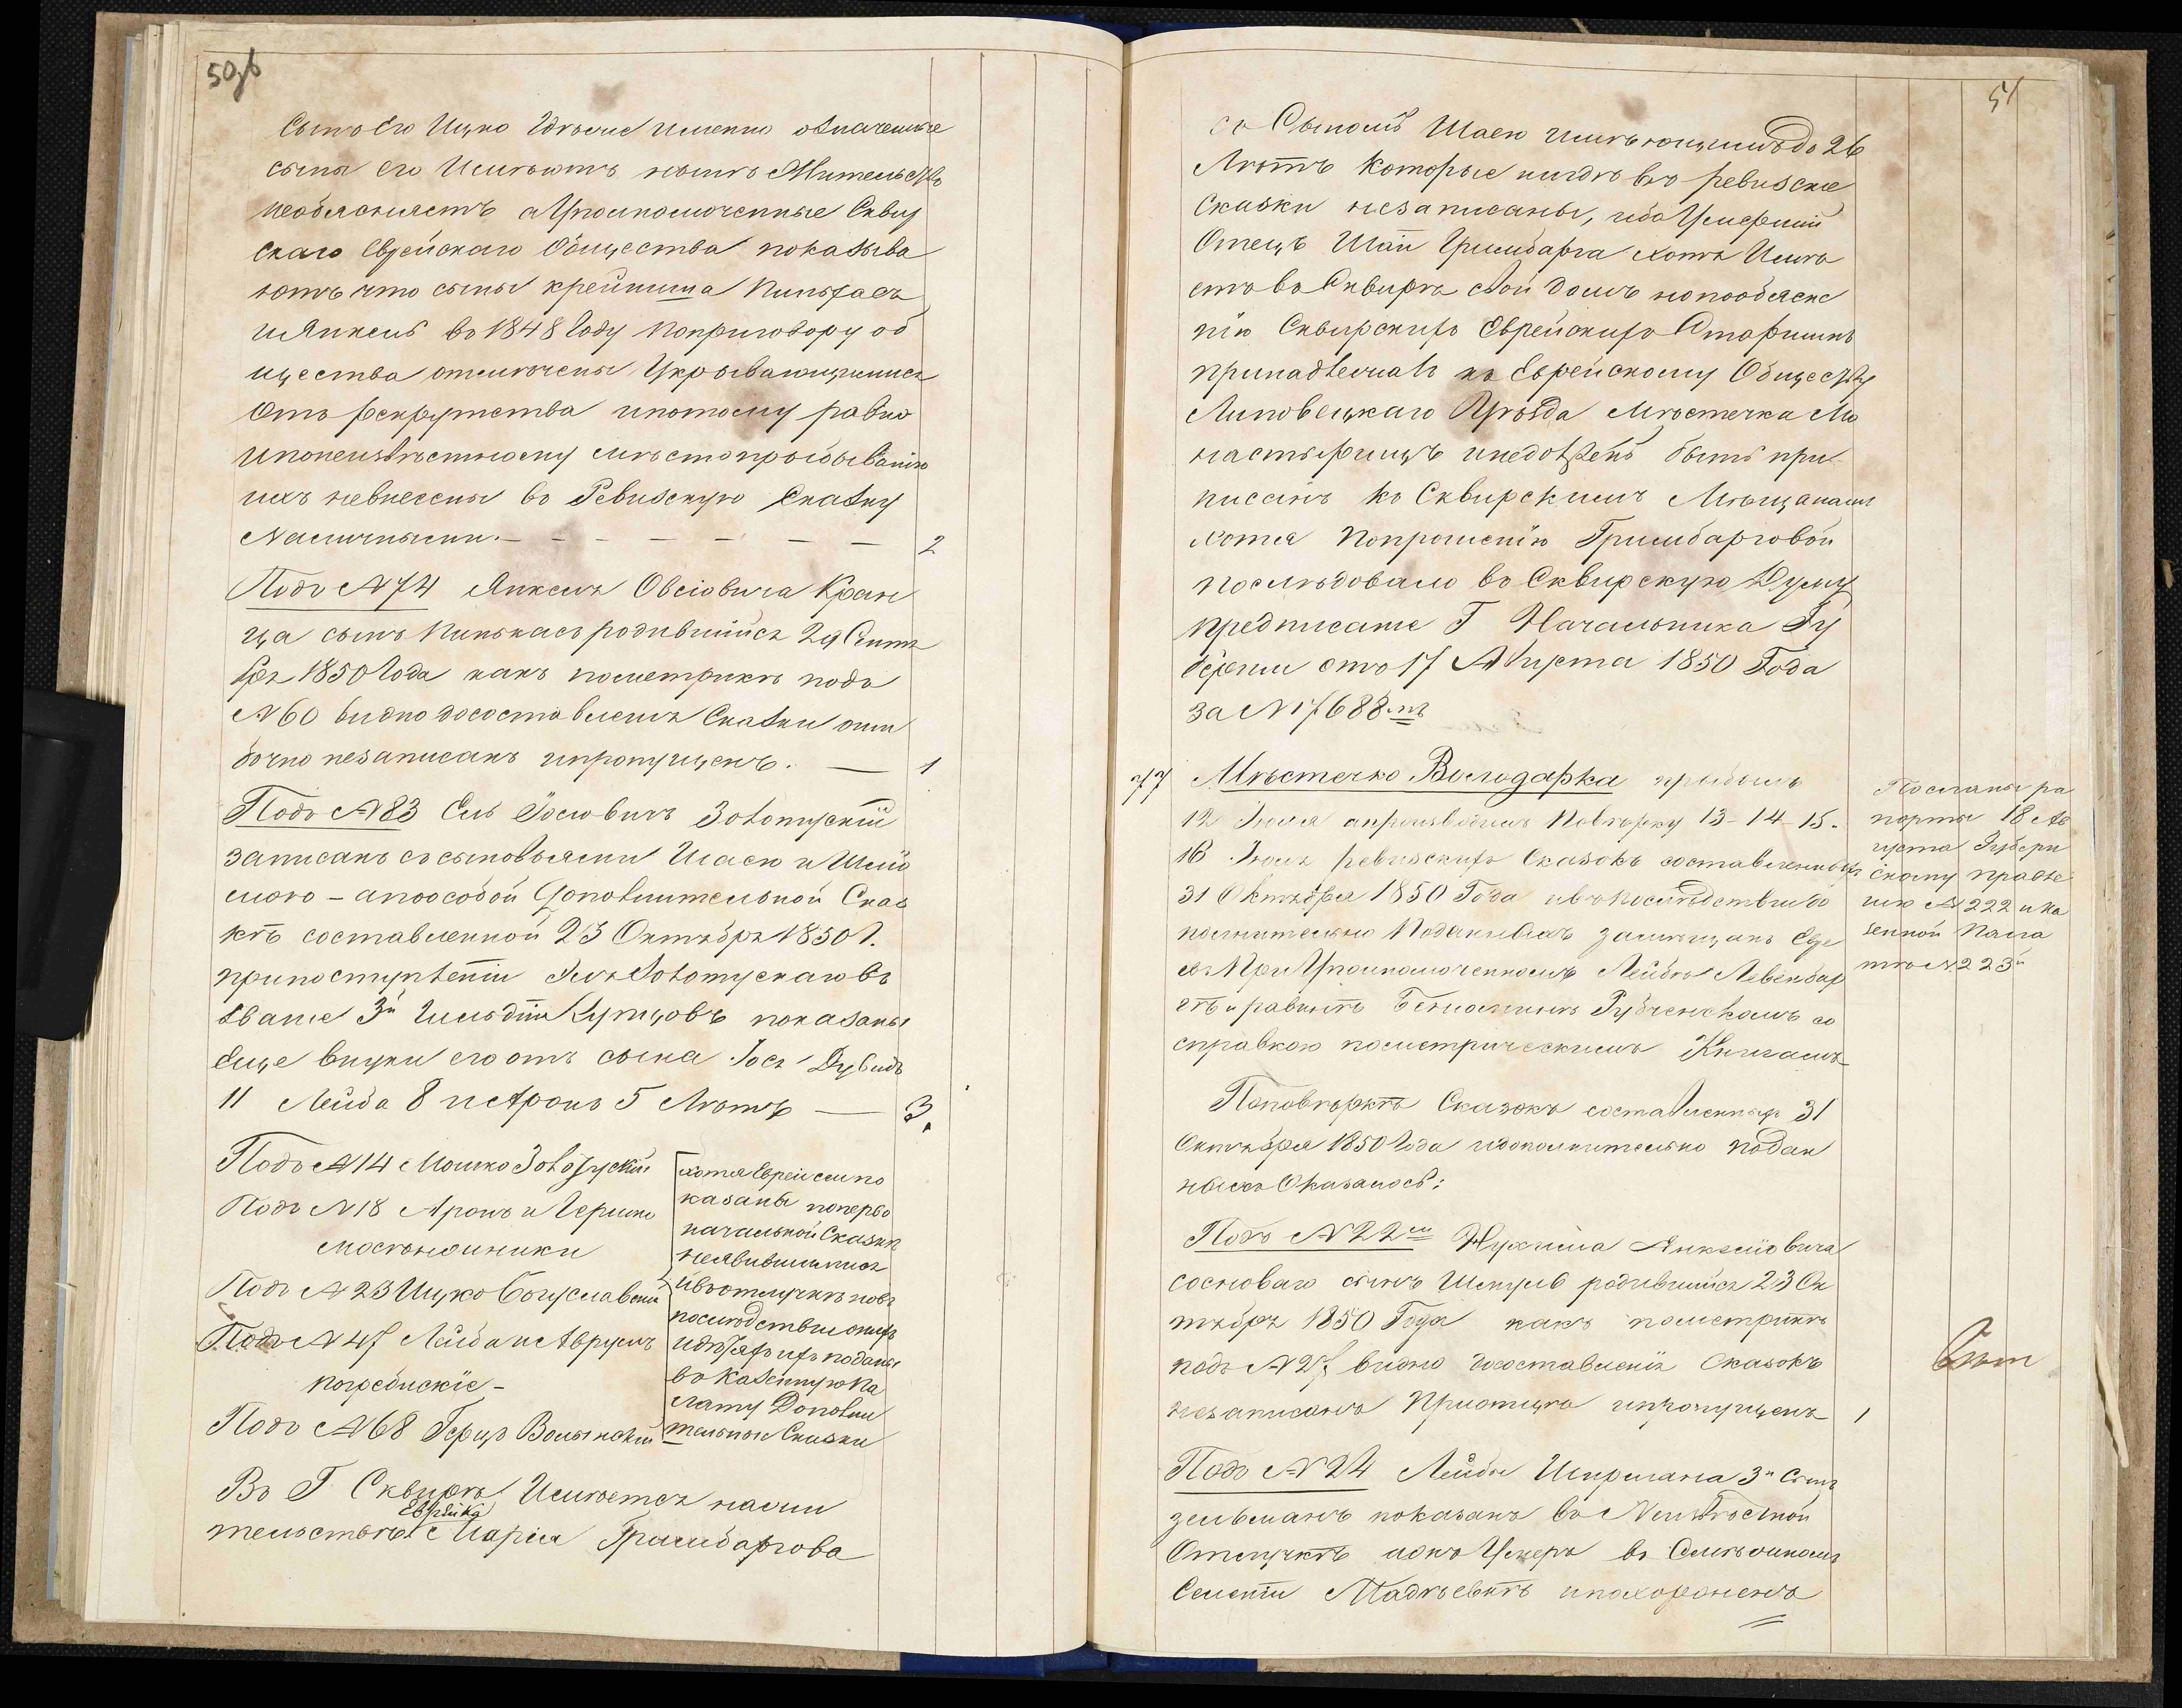 50об
Сынъ его Ицко Гдѣоные именно означенные
сыны его Имѣютъ нынѣ Жительство
необясняетъ а Уполномоченные Сквир
скаго Еврейскаго Общества показыва
ютъ что сыны крейниша Пинхасъ
и Янкель въ 1848 Году по приговору об
щества отмѣчены Укрывающимися
Отъ рекрутства и потому равно
и понеизвѣстному мѣстопрыбыванію
ихъ невнесены въ Ревизскую Сказку
Наличными. — — — — — — 2
Подъ №74 Янкеля Овсіовича Кран
ца сынъ Пинькасъ родившійся 29 Сентя
бря 1850 Года какъ пометрикѣ подъ
№60 видно досоставленія Сказки оши
бочно незаписанъ и пропущенъ. — 1
Подъ №83 Ель Іосіовичъ Золотускій
записанъ съ сыновьями Шаею и Шлио
мою – а по особой Дополнительной Сказ
кѣ составленной 23 Октября 1850 г.
при поступленіи Еля Золотускаго въ
званіе 3й Гильдіи Купцовъ показаны
Еще внуки его отъ сына Іося Дувидъ
11 Лейба 8 и Аронъ 5 Лѣтъ — 3.
Подъ №14 Мошко Золотускій
Подъ №18 Аронъ и Гершко
Подъ №23 Ицко Богуславскій
Подъ №47 Лейба и Аврумъ
погребискіе –
Подъ №68 Герцъ Волынскій
хотя Евреи сии по
казаны поперво
начальной Сказкѣ
неявившимися
и въ отлучкѣ но въ
послѣдствіи онихъ
подани
въ Казенную Па
лату Дополни
тельные Сказки
Въ Г Сквирѣ Имѣется на жи
Еврейка
тельствѣ Маріся Гримбаргова
51
съ Сыномъ Шаею имѣющимъ до 26
Лѣтъ Которые нигдѣ въ ревизскіе
Сказки незаписаны, ибо Умершій
Отецъ Шаи Гримбарга хотя Имѣ
етъ въ Сквирѣ свой домъ но по объясне
нію Сквирскихъ Еврейскихъ Старшинъ
принадлежалъ къ Еврейскому Обществу
Липовецкаго Уѣзда Мѣстечка Мо
настырищъ и недолженъ быть при
писанъ къ Сквирскимъ Мѣщанамъ
хотя По прошенію Гримбарговой
послѣдовало въ Сквирскую Думу
предписаніе Г Начальника Гу
берніи отъ 17 Августа 1850 Года
за №17688мъ
77 Мѣстечко Володарка прыбылъ
12 Іюля а произвѣлъ Повѣрку 13-14-15-
16 Іюля ревизскихъ Сказокъ составленныхъ
31 Октября 1850 Года и въ послѣдствіи до
полнительно Поданныхъ
при Уполномоченномъ Лейбѣ Левенбар
гѣ и равинѣ Беньоминѣ Рубченскомъ со
справкою пометрическимъ Книгамъ
Посланы ра
порты 18 Ав
густа Губерн
скому правле
нію №222 и Ка
зенной Пала
тѣ №223й
По повѣркѣ Сказокъ составленныхъ 31
Октября 1850 Года и дополнительно подан
ныхъ Оказалось:
Подъ №22м Нухима Янкеліовича
сосноваго сынъ родившійся 23 Ок
тября 1850 Года какъ пометрикѣ
подъ №27 видно составленія Сказокъ
незаписанъ При отцѣ и пропущенъ 1
Подъ №24 Лейбы Ширмана 3й Сынъ
зельманъ показанъ въ Неизвѣстной
Отлучкѣ Умеръ въ
Селеніи и похороненъ